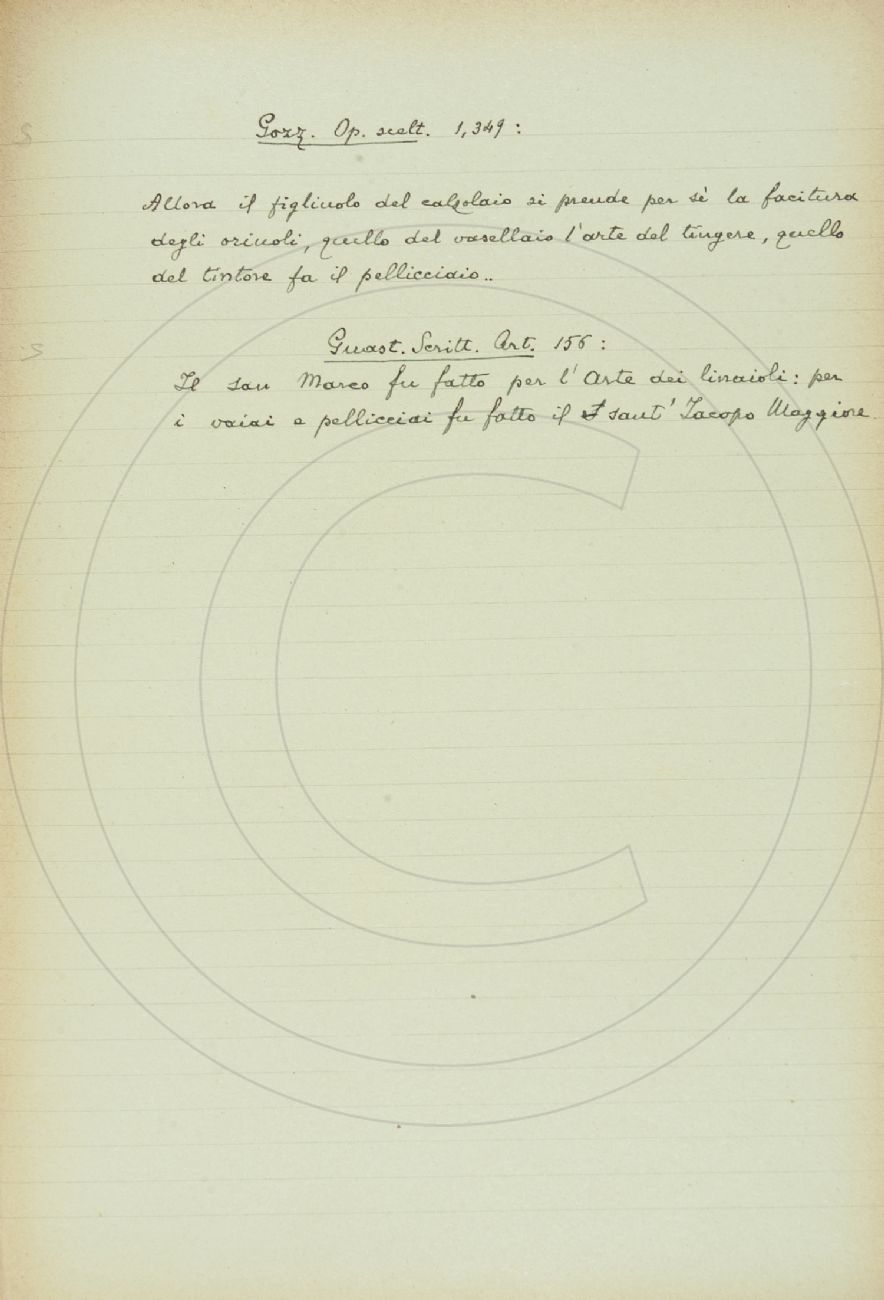 Gozz. Op. scelt. 1, 349 :
Allora il figliuolo del calzolaio si prende per sè la facitura
degli oriuoli, quello del vasellaio l'arte del tingere, quello
del tintore fa il pellicciaio..
Guast. Scritt. Art. 156 :
Il san Marco fu fatto per l'Arte dei linaioli: per
i vaiai e pellicciai fu fatto il sant' Iacopo Maggiore.